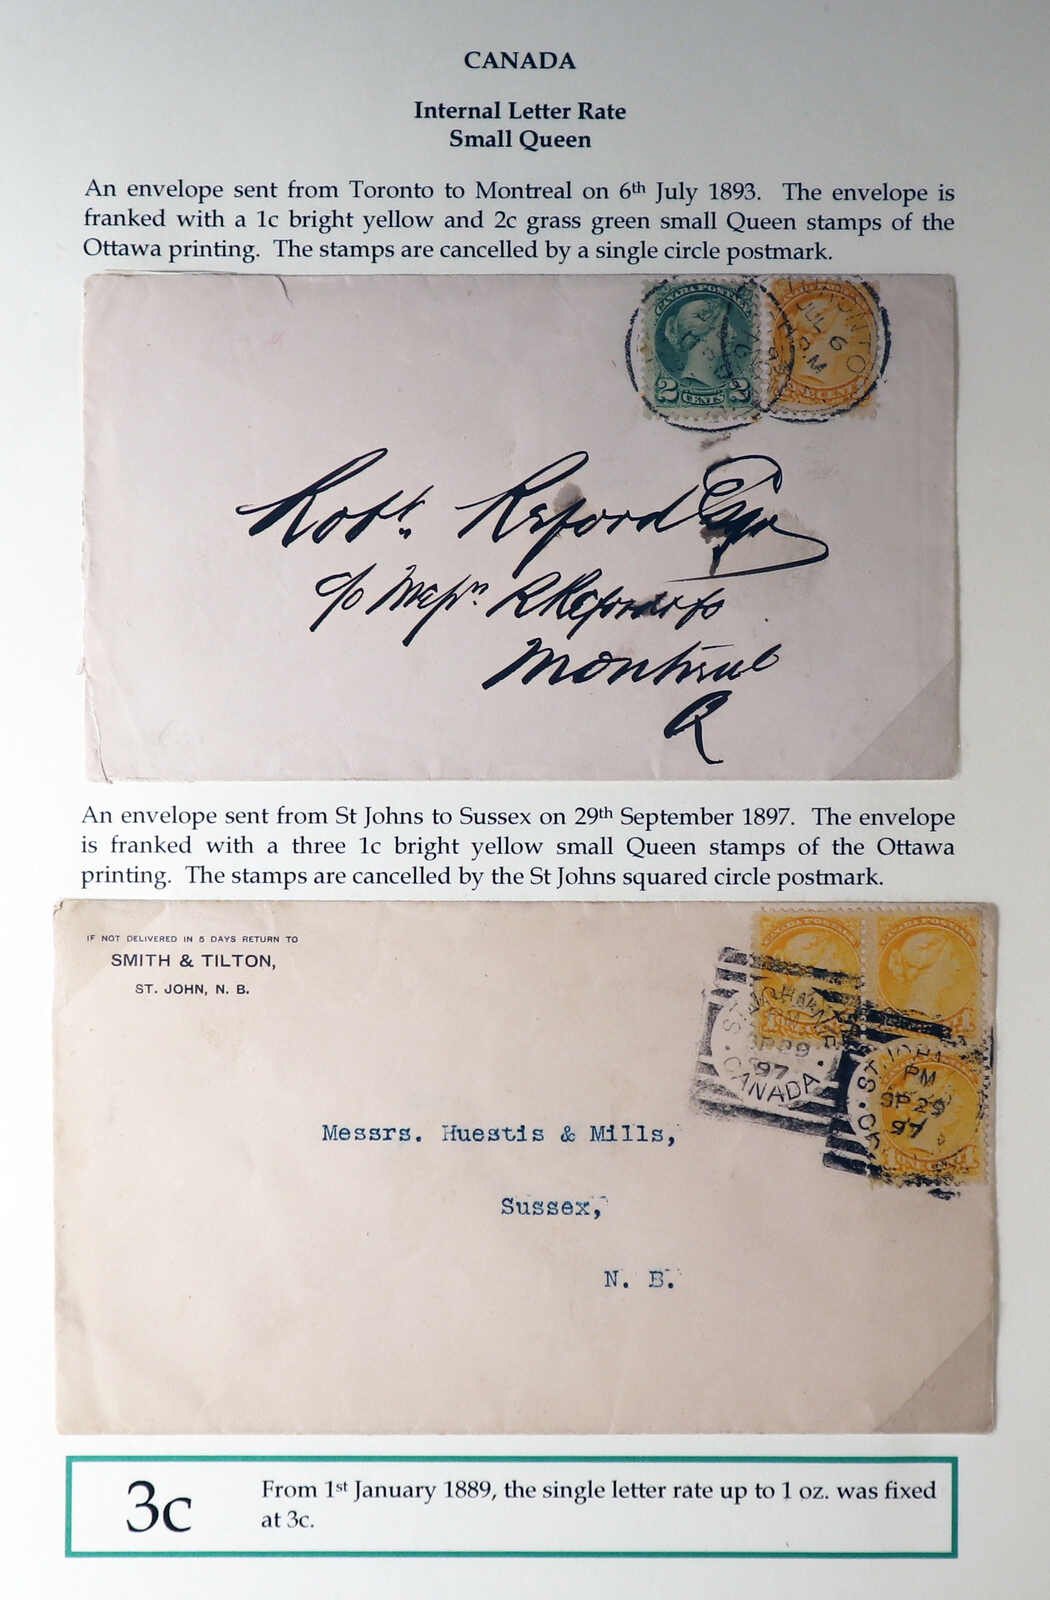 CANADA
Internal Letter Rate
Small Queen
An envelope sent from Toronto to Montreal on 6th July 1893. The envelope is
franked with a 1c bright yellow and 2c grass green small Queen stamps of the
Ottawa printing. The stamps are cancelled by a single circle postmark.
CANADA POSTAGE
2 CENTS 2
TORONTO
JUL 6
PM
93
Robt. Reford Esqr
c/o Messrs. R Reford & Co
Montreal
Q
An envelope sent from St Johns to Sussex on 29th September 1897. The envelope
is franked with a three 1c bright yellow small Queen stamps of the Ottawa
printing. The stamps are cancelled by the St Johns squared circle postmark.
IF NOT DELIVERED IN 5 DAYS RETURN TO
SMITH & TILTON,
ST. JOHN, N. B.
CANADA POSTAGE
CANADA POSTAGE
ST. JOHN N.B.
SP 29
97
CANADA
ST. JOHN
PM
SP 29
97
1 ONE CENT 1
Messrs. Huestis & Mills,
Sussex,
N. B.
3c
From 1st January 1889, the single letter rate up to 1 oz. was fixed
at 3c.